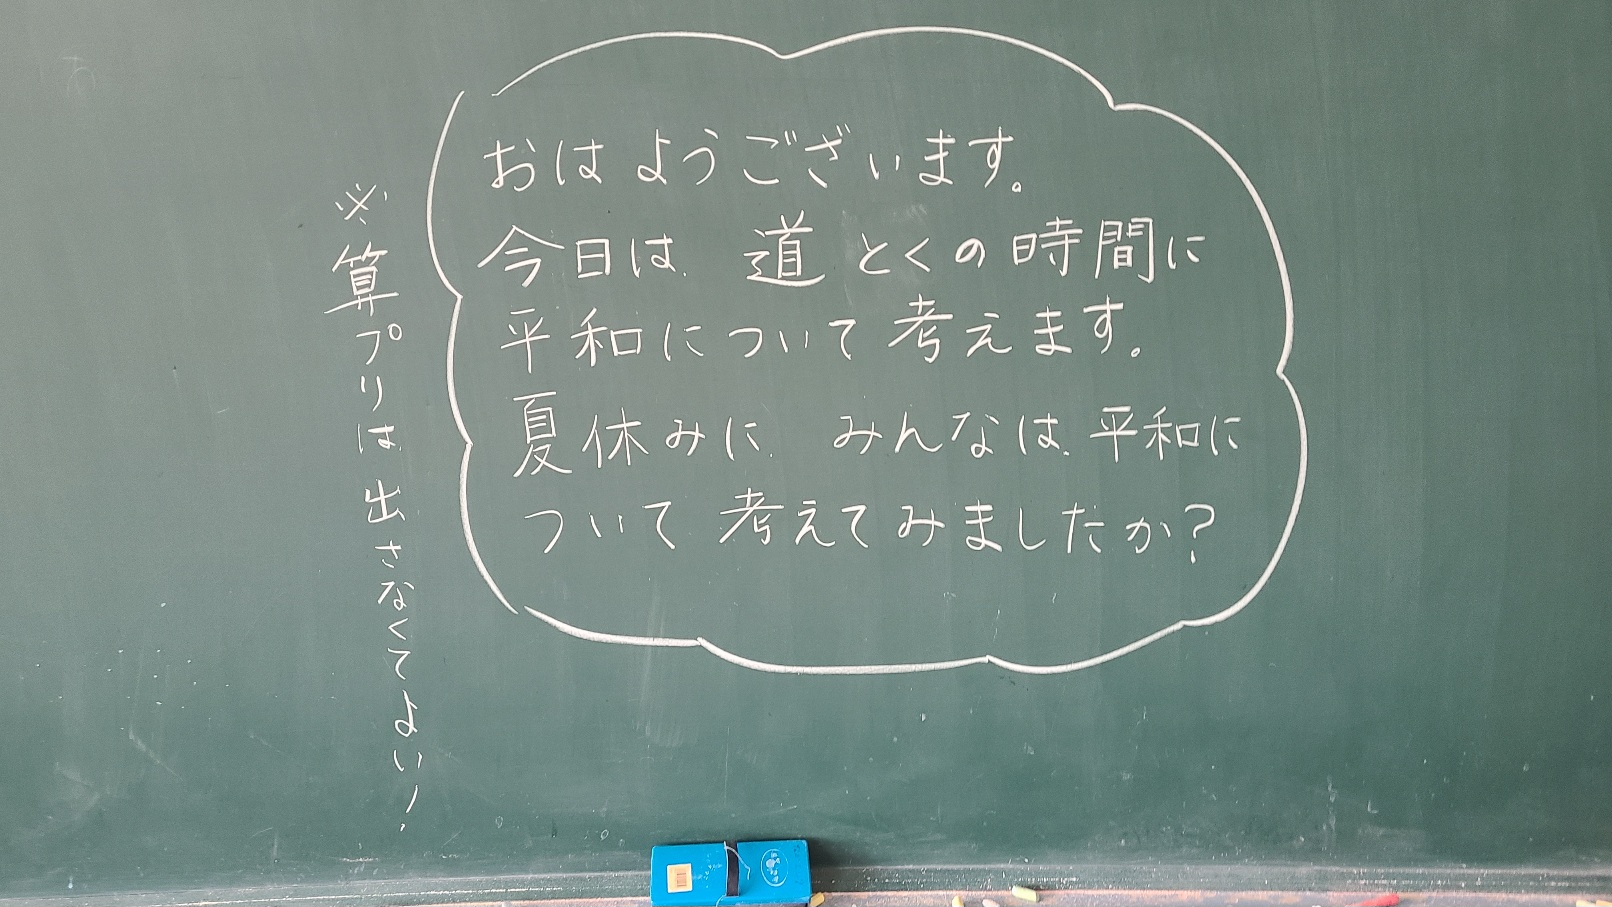 おはようございます。
今日は、道とくの時間に
平和について考えます。
夏休みに、みんなは、平和に
ついて考えてみましたか?
※算プリは出さなくてよい!